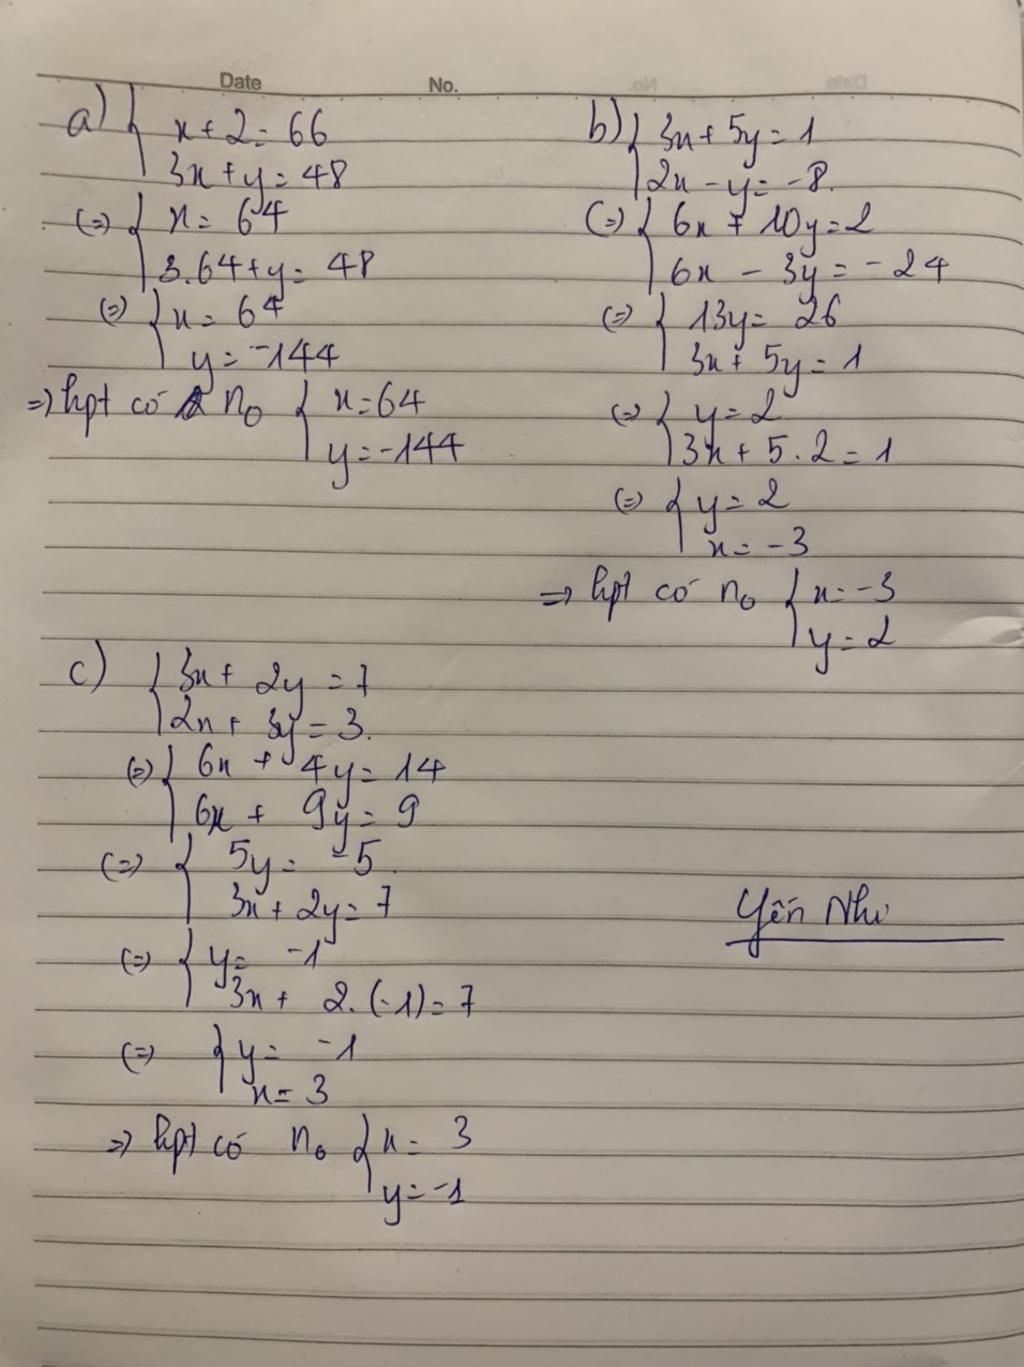 Date No.
a) { x + 2 = 66
3x + y = 48
(=) { x = 64
3.64 + y = 48
(=) { x = 64
y = -144
=) hpt có n₀ { x = 64
y = -144
b) { 3x + 5y = 1
2x - y = -8.
(=) { 6x + 10y = 2
6x - 3y = -24
(=) { 13y = 26
3x + 5y = 1
(=) { y = 2
3x + 5.2 = 1
(=) { y = 2
x = -3
=) hpt có n₀ { x = -3
y = 2
c) { 3x + 2y = 7
2x + 3y = 3.
(=) { 6x + 4y = 14
6x + 9y = 9
(=) { 5y = -5
3x + 2y = 7
(=) { y = -1
3x + 2.(-1) = 7
(=) { y = -1
x = 3
=) hpt có n₀ { x = 3
y = -1
Yến Như